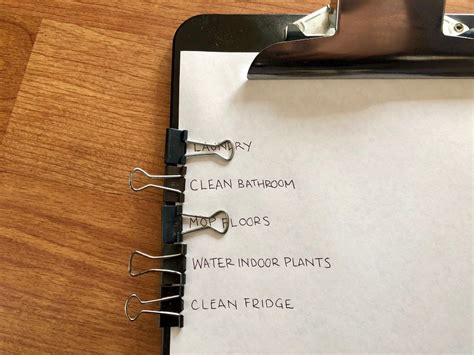 LAUNDRY
CLEAN BATHROOM
MOP FLOORS
WATER INDOOR PLANTS
CLEAN FRIDGE